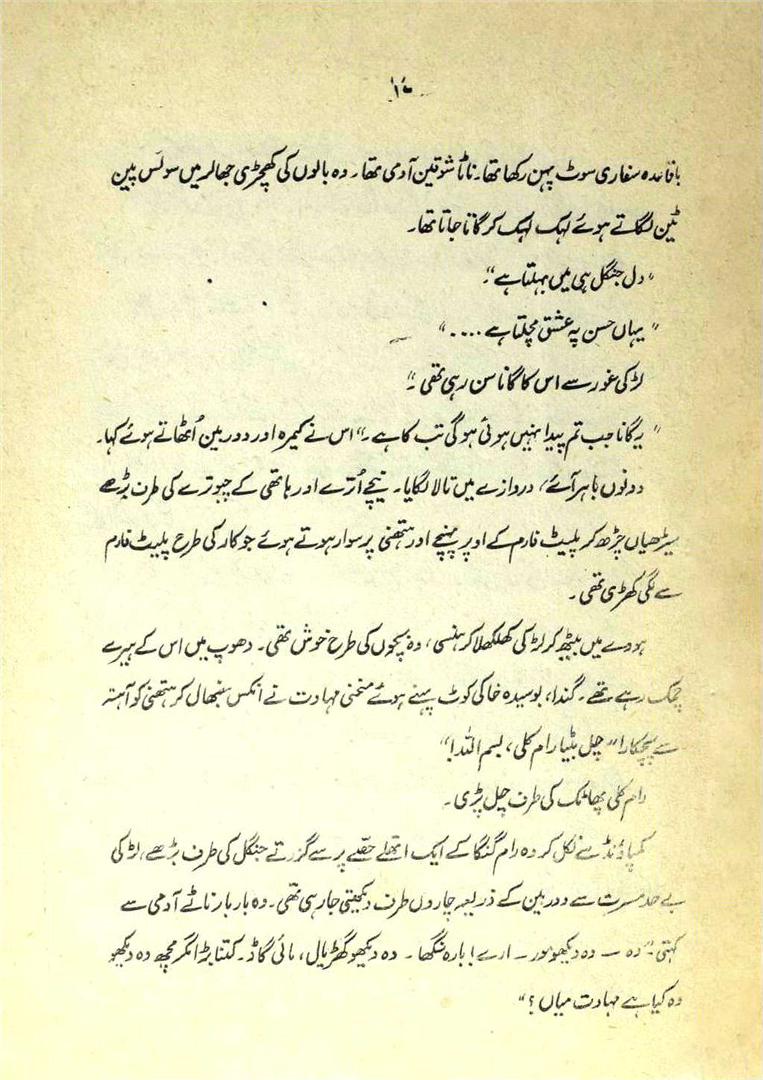 باقاعدہ سفاری سوٹ پہن رکھا تھا۔ ناٹا شوقین آدمی تھا۔ وہ بالوں کی کھچڑی جھالر میں سولس پین
ٹین لگاتے ہوئے لہک لہک کر گاتا جاتا تھا۔
"دل جنگل ہی میں بہلتا ہے"۔
"یہاں حسن پہ عشق مچلتا ہے ...."
لڑکی غور سے اس کا گانا سن رہی تھی۔"
"یہ گانا جب تم پیدا نہیں ہوئی ہوگی تب کا ہے۔" اس نے کیمرہ اور دوربین اُٹھاتے ہوئے کہا۔
دونوں باہر آئے، دروازے میں تالا لگایا۔ نیچے اُترے اور ہاتھی کے چبوترے کی طرف بڑھے
سیڑھیاں چڑھ کر پلیٹ فارم کے اوپر پہنچے اور ہتھنی پر سوار ہوتے ہوئے جو کار کی طرح پلیٹ فارم
سے لگی کھڑی تھی۔
ہودے میں بیٹھ کر لڑکی کھلکھلا کر ہنسی، وہ بچوں کی طرح خوش تھی۔ دھوپ میں اس کے ہیرے
چمک رہے تھے۔ گندا، بوسیدہ خاکی کوٹ پہنے ہوئے منحنی مہاوت نے انکس سنبھال کر ہتھنی کو آہستہ
سے پچکارا "چل بٹیا رام کلی، بسم اللہ!"
رام کلی پھاٹک کی طرف چل پڑی۔
کمپاؤنڈ سے نکل کر وہ رام گنگا کے ایک اتھلے حصّے پر سے گزرتے جنگل کی طرف بڑھے، لڑکی
بے حد مسرت سے دوربین کے ذریعہ چاروں طرف دیکھتی جا رہی تھی۔ وہ بار بار ناٹے آدمی سے
کہتی۔ "وہ — وہ دیکھو مور — ارے! بارہ سنگھا۔ وہ دیکھو گھڑیال، مائی گاڈ۔ کتنا بڑا مگرمچھ وہ دیکھو
وہ کیا ہے مہاوت میاں؟"